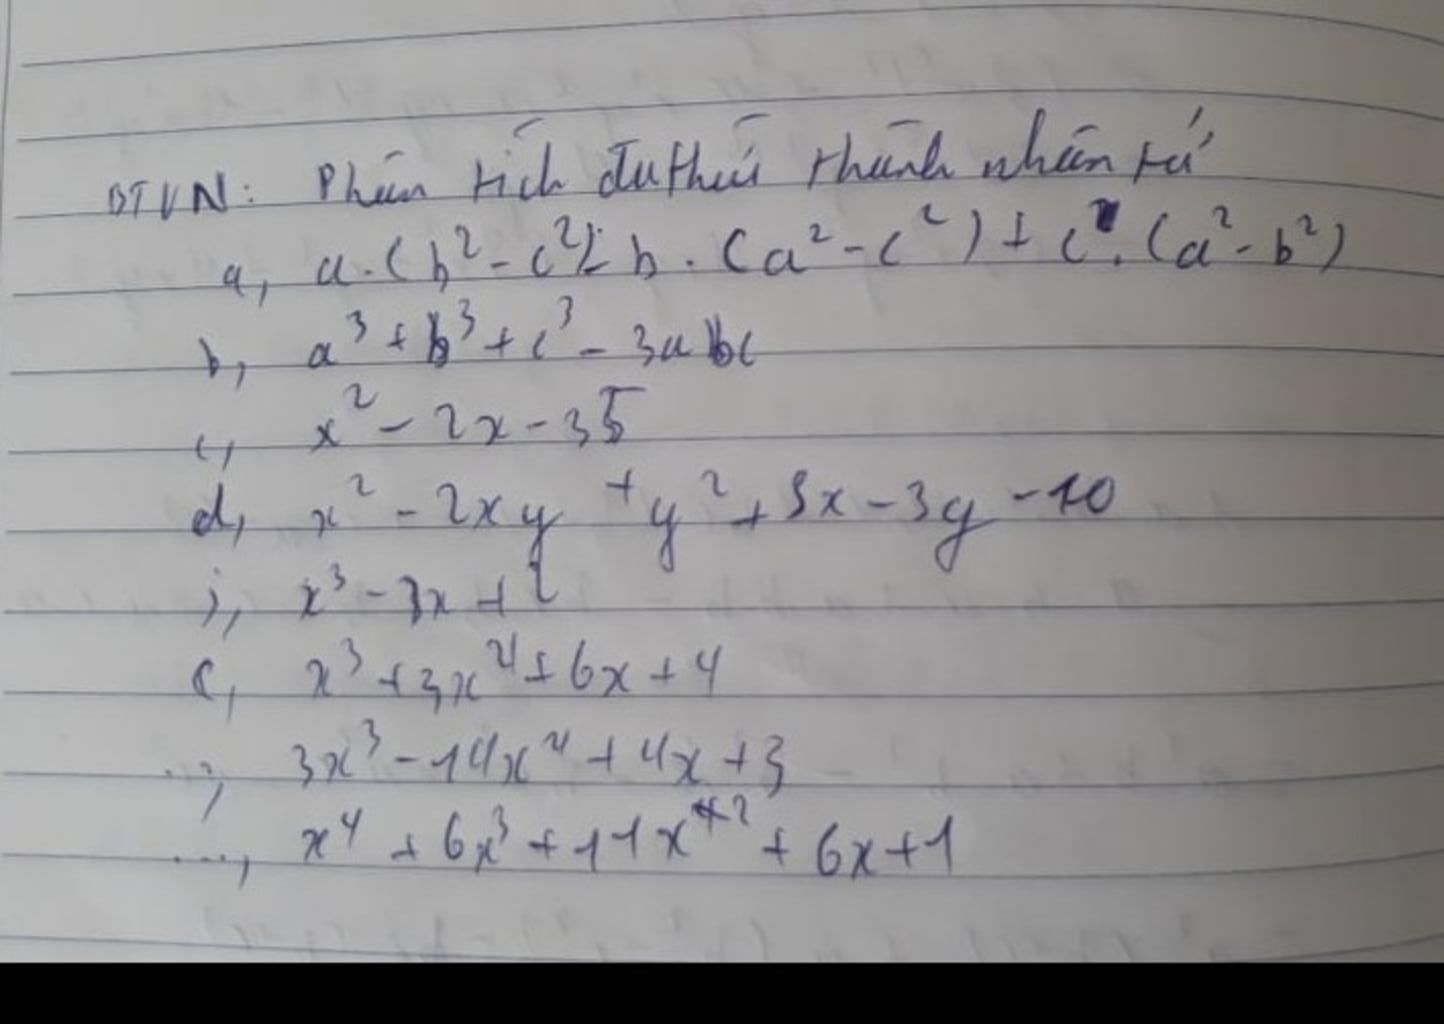 BTVN: Phân tích đa thức thành nhân tử
a, a.(b² - c²) - b.(a² - c²) + c.(a² - b²)
b, a³ + b³ + c³ - 3abc
c, x² - 2x - 35
d, x² - 2xy + y² + 3x - 3y - 10
x³ - 3x + 2
x³ + 3x⁴ + 6x + 4
3x³ - 14x⁴ + 4x + 3
..., x⁴ + 6x³ + 11x² + 6x + 1